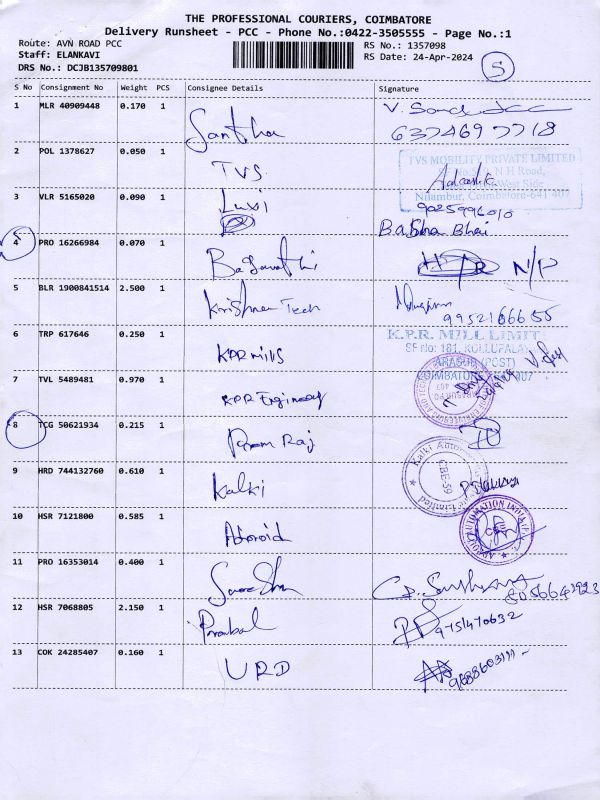 THE PROFESSIONAL COURIERS, COIMBATORE
Delivery Runsheet - PCC - Phone No.:0422-3505555 - Page No.:1
Route: AVN ROAD PCC
RS No.: 1357098
Staff: ELANKAVI
RS Date: 24-Apr-2024
DRS No.: DCJB135709801
S
S No Consignment No Weight PCS Consignee Details Signature
1 MLR 40909448 0.170 1 Santha
6374697718
2 POL 1378627 0.050 1 TVS
TVS MOBILITY PRIVATE LIMITED
N H Road,
West Side
Nilambur, Coimbatore-641 407
3 VLR 5165020 0.090 1 Luxi 9025996010
Babha Bhai
4 PRO 16266984 0.070 1 N/P
5 BLR 1900841514 2.500 1 Krishna Tech
9952166655
6 TRP 617646 0.250 1 KPR Mills
K.P.R. MILL LIMIT
SF No: 181, KOLLUPALAY
ARASUR (POST)
COIMBATORE 407
7 TVL 5489481 0.970 1 KPR Engineery
8 TCG 50621934 0.215 1 Prem Raj
9 HRD 744132760 0.610 1 Kalki
CBE-59
10 HSR 7121800 0.585 1
11 PRO 16353014 0.400 1
12 HSR 7068805 2.150 1 Prabal
9751470632
13 COK 24285407 0.160 1 URD
9688603111